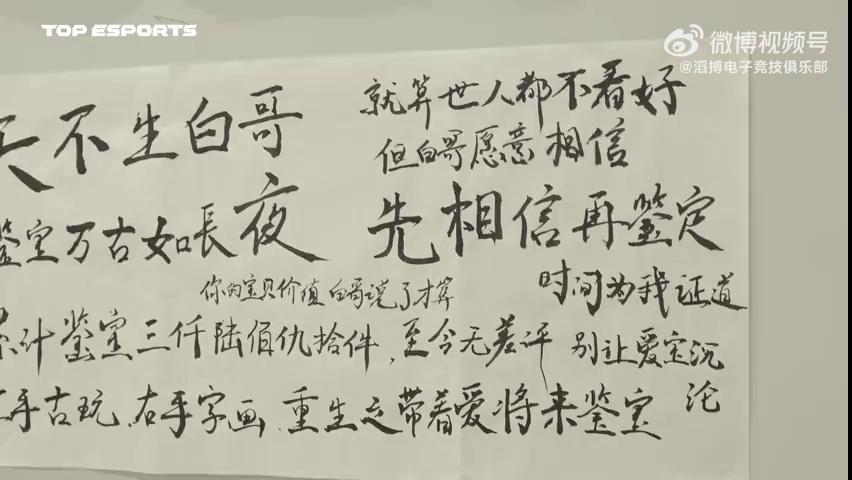 TOP ESPORTS
微博视频号
@滔搏电子竞技俱乐部
天不生白哥
鉴宝万古如長夜
就算世人都不看好
但白哥愿意相信
先相信再鉴定
你的宝贝价值白哥说了才算
时间为我证道
计鉴宝三仟陆佰仇拾件，至今无差评
别让爱宝沉沦
手古玩，右手字画，重生之带着爱将来鉴宝